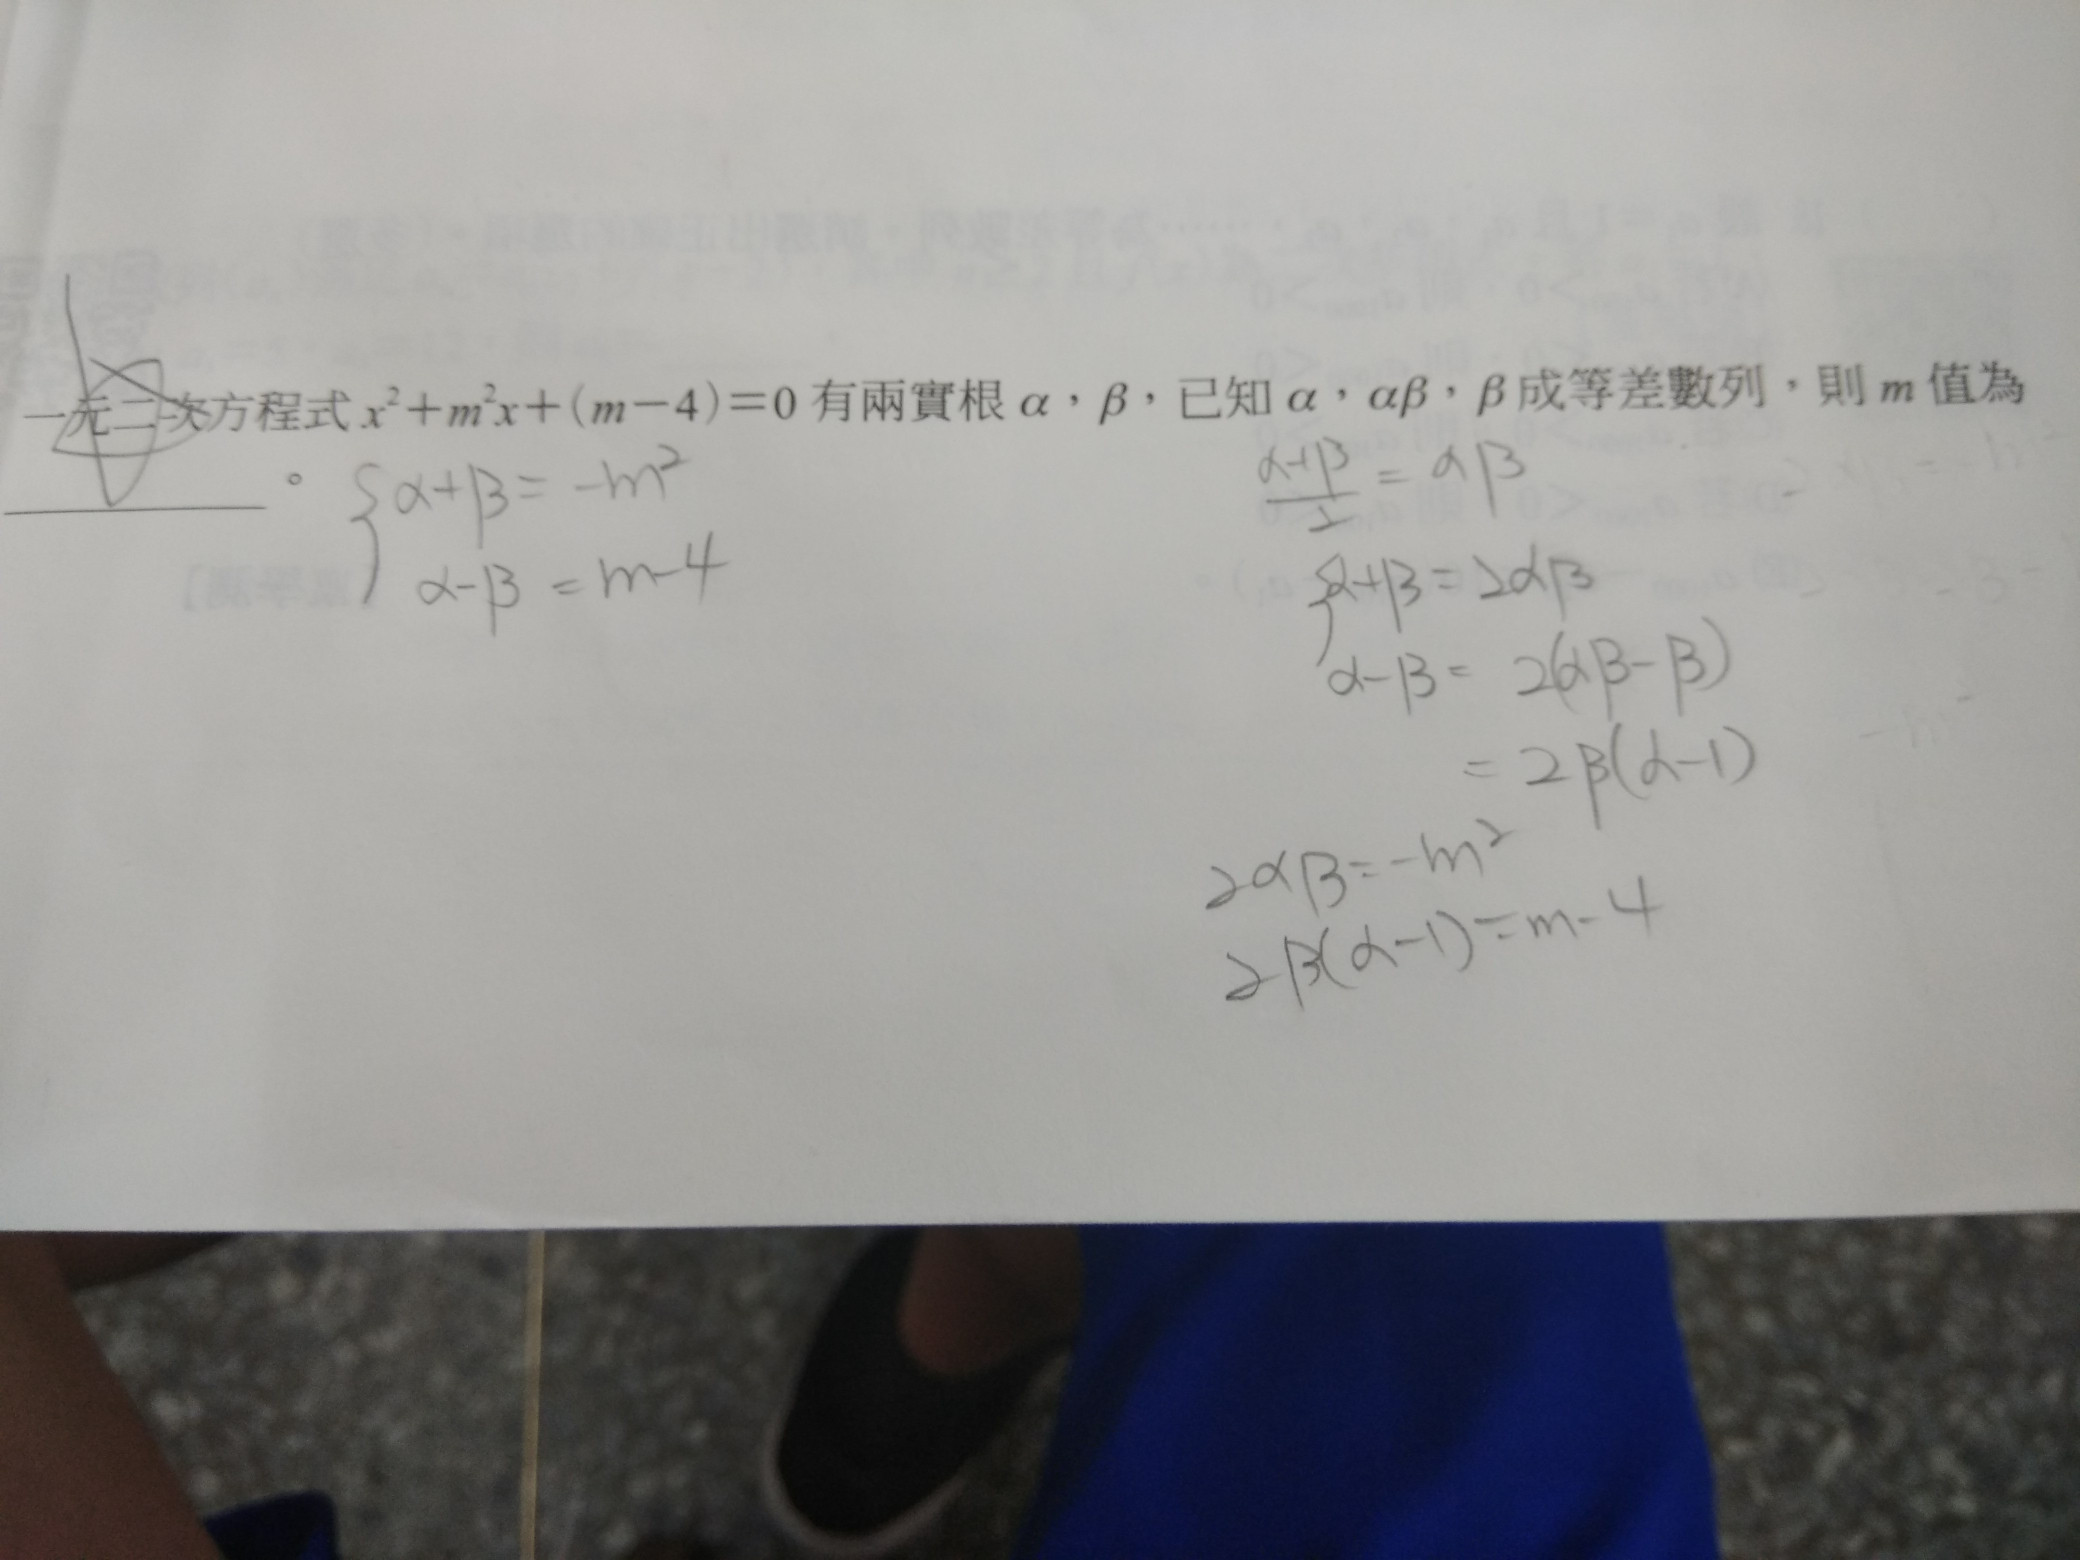 一元二次方程式 x²+m²x+(m-4)=0 有兩實根 α，β，已知 α，αβ，β 成等差數列，則 m 值為
。
α+β=-m²
α-β=m-4
α+β/2=αβ
α+β=2αβ
α-β=2(αβ-β)
=2β(α-1)
2αβ=-m²
2β(α-1)=m-4